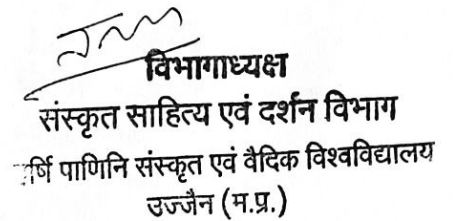 विभागाध्यक्ष
संस्कृत साहित्य एवं दर्शन विभाग
र्षि पाणिनि संस्कृत एवं वैदिक विश्वविद्यालय
उज्जैन (म.प्र.)